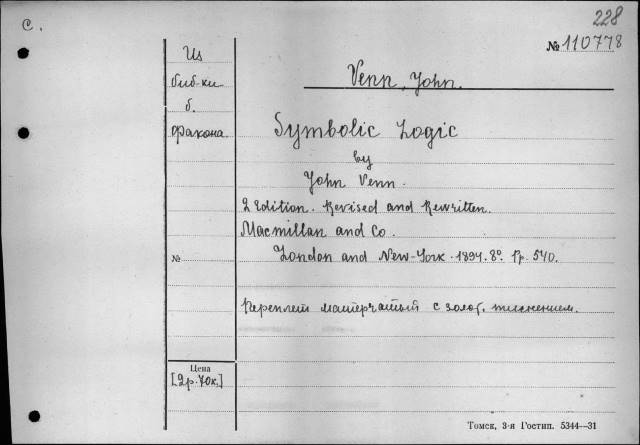 с.
228
№ 110778
Из
биб-ки
б.
фракона.
Venn, John.
Symbolic Logic
by
John Venn.
2 Edition. Revised and Rewritten.
Macmillan and Co.
№
London and New-York. 1894. 8°. Pp. 540.
Переплет матерчатый с золот. тиснением.
Цена
[2р. 70к.]
Томск, 3-я Гостип. 5344—31